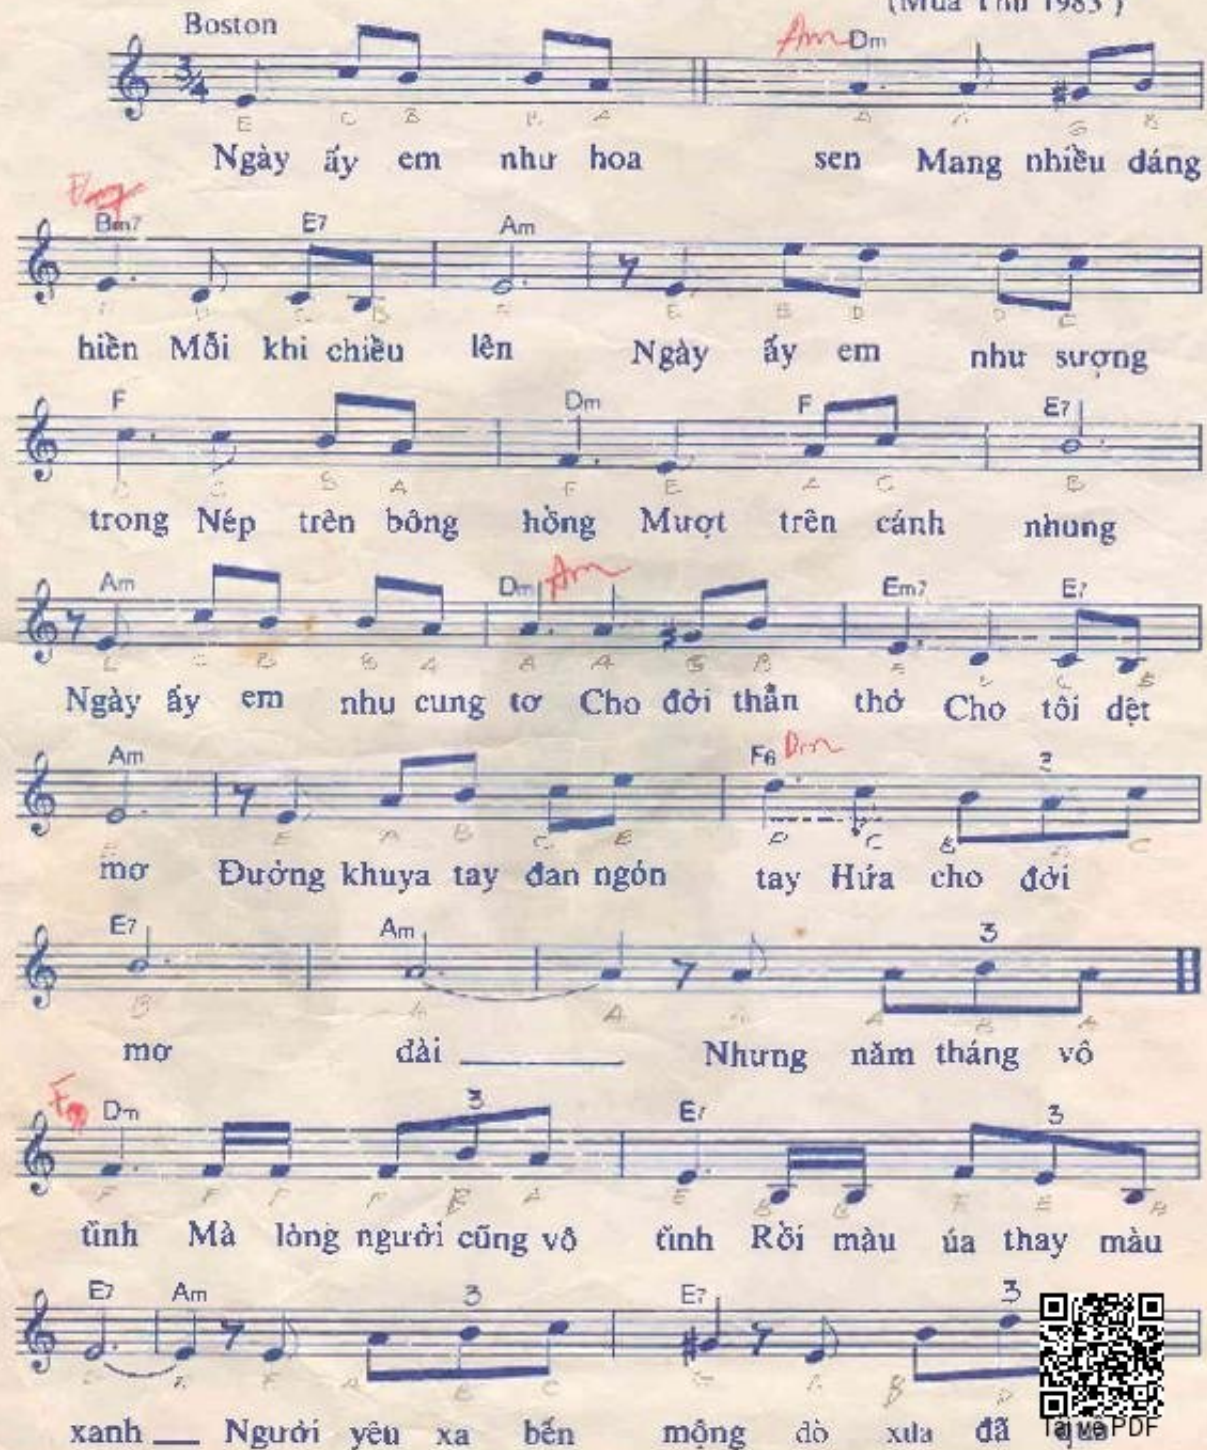 (Mùa Thu 1983)
Boston
3/4
Am Dm
E C B B A A A G B
Ngày ấy em như hoa sen Mang nhiều dáng
Bm7 E7 Am
hiền Mỗi khi chiều lên Ngày ấy em như sượng
F Dm F E7
C C B A F E A C B
trong Nép trên bông hồng Mượt trên cánh nhung
Am Dm Am Em7 E7
E C B B A A A G B E D C B
Ngày ấy em như cung tơ Cho đời thẫn thờ Cho tôi dệt
Am F6 Dm 3
E E A B C E D C B A C
mơ Đường khuya tay đan ngón tay Hứa cho đời
E7 Am 3
B A A A A B A
mơ dài Nhưng năm tháng vô
Dm 3 E7 3
F F F F B A E B B F E B
tình Mà lòng người cũng vô tình Rồi màu úa thay màu
E7 Am 3 E7 3
xanh Người yêu xa bến mộng đò xưa đã
Tải về PDF